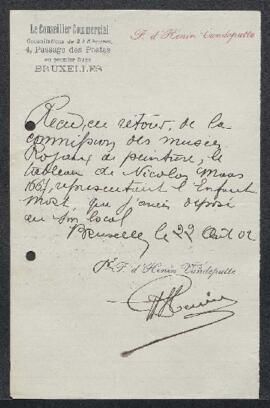 Le Conseiller Commercial
Consultations de 2 à 6 heures
4, Passage des Postes
au premier étage
BRUXELLES
F. d'Henin Vandeputte
Reçu, en retour, de la
commission des musées
Royaux de peinture, le
tableau de Nicolas Maas
1667, représentant l'Enfant
mort, que j'avais déposé
au dit local
Bruxelles, le 22 Août 02
Pr F. d'Henin Vandeputte